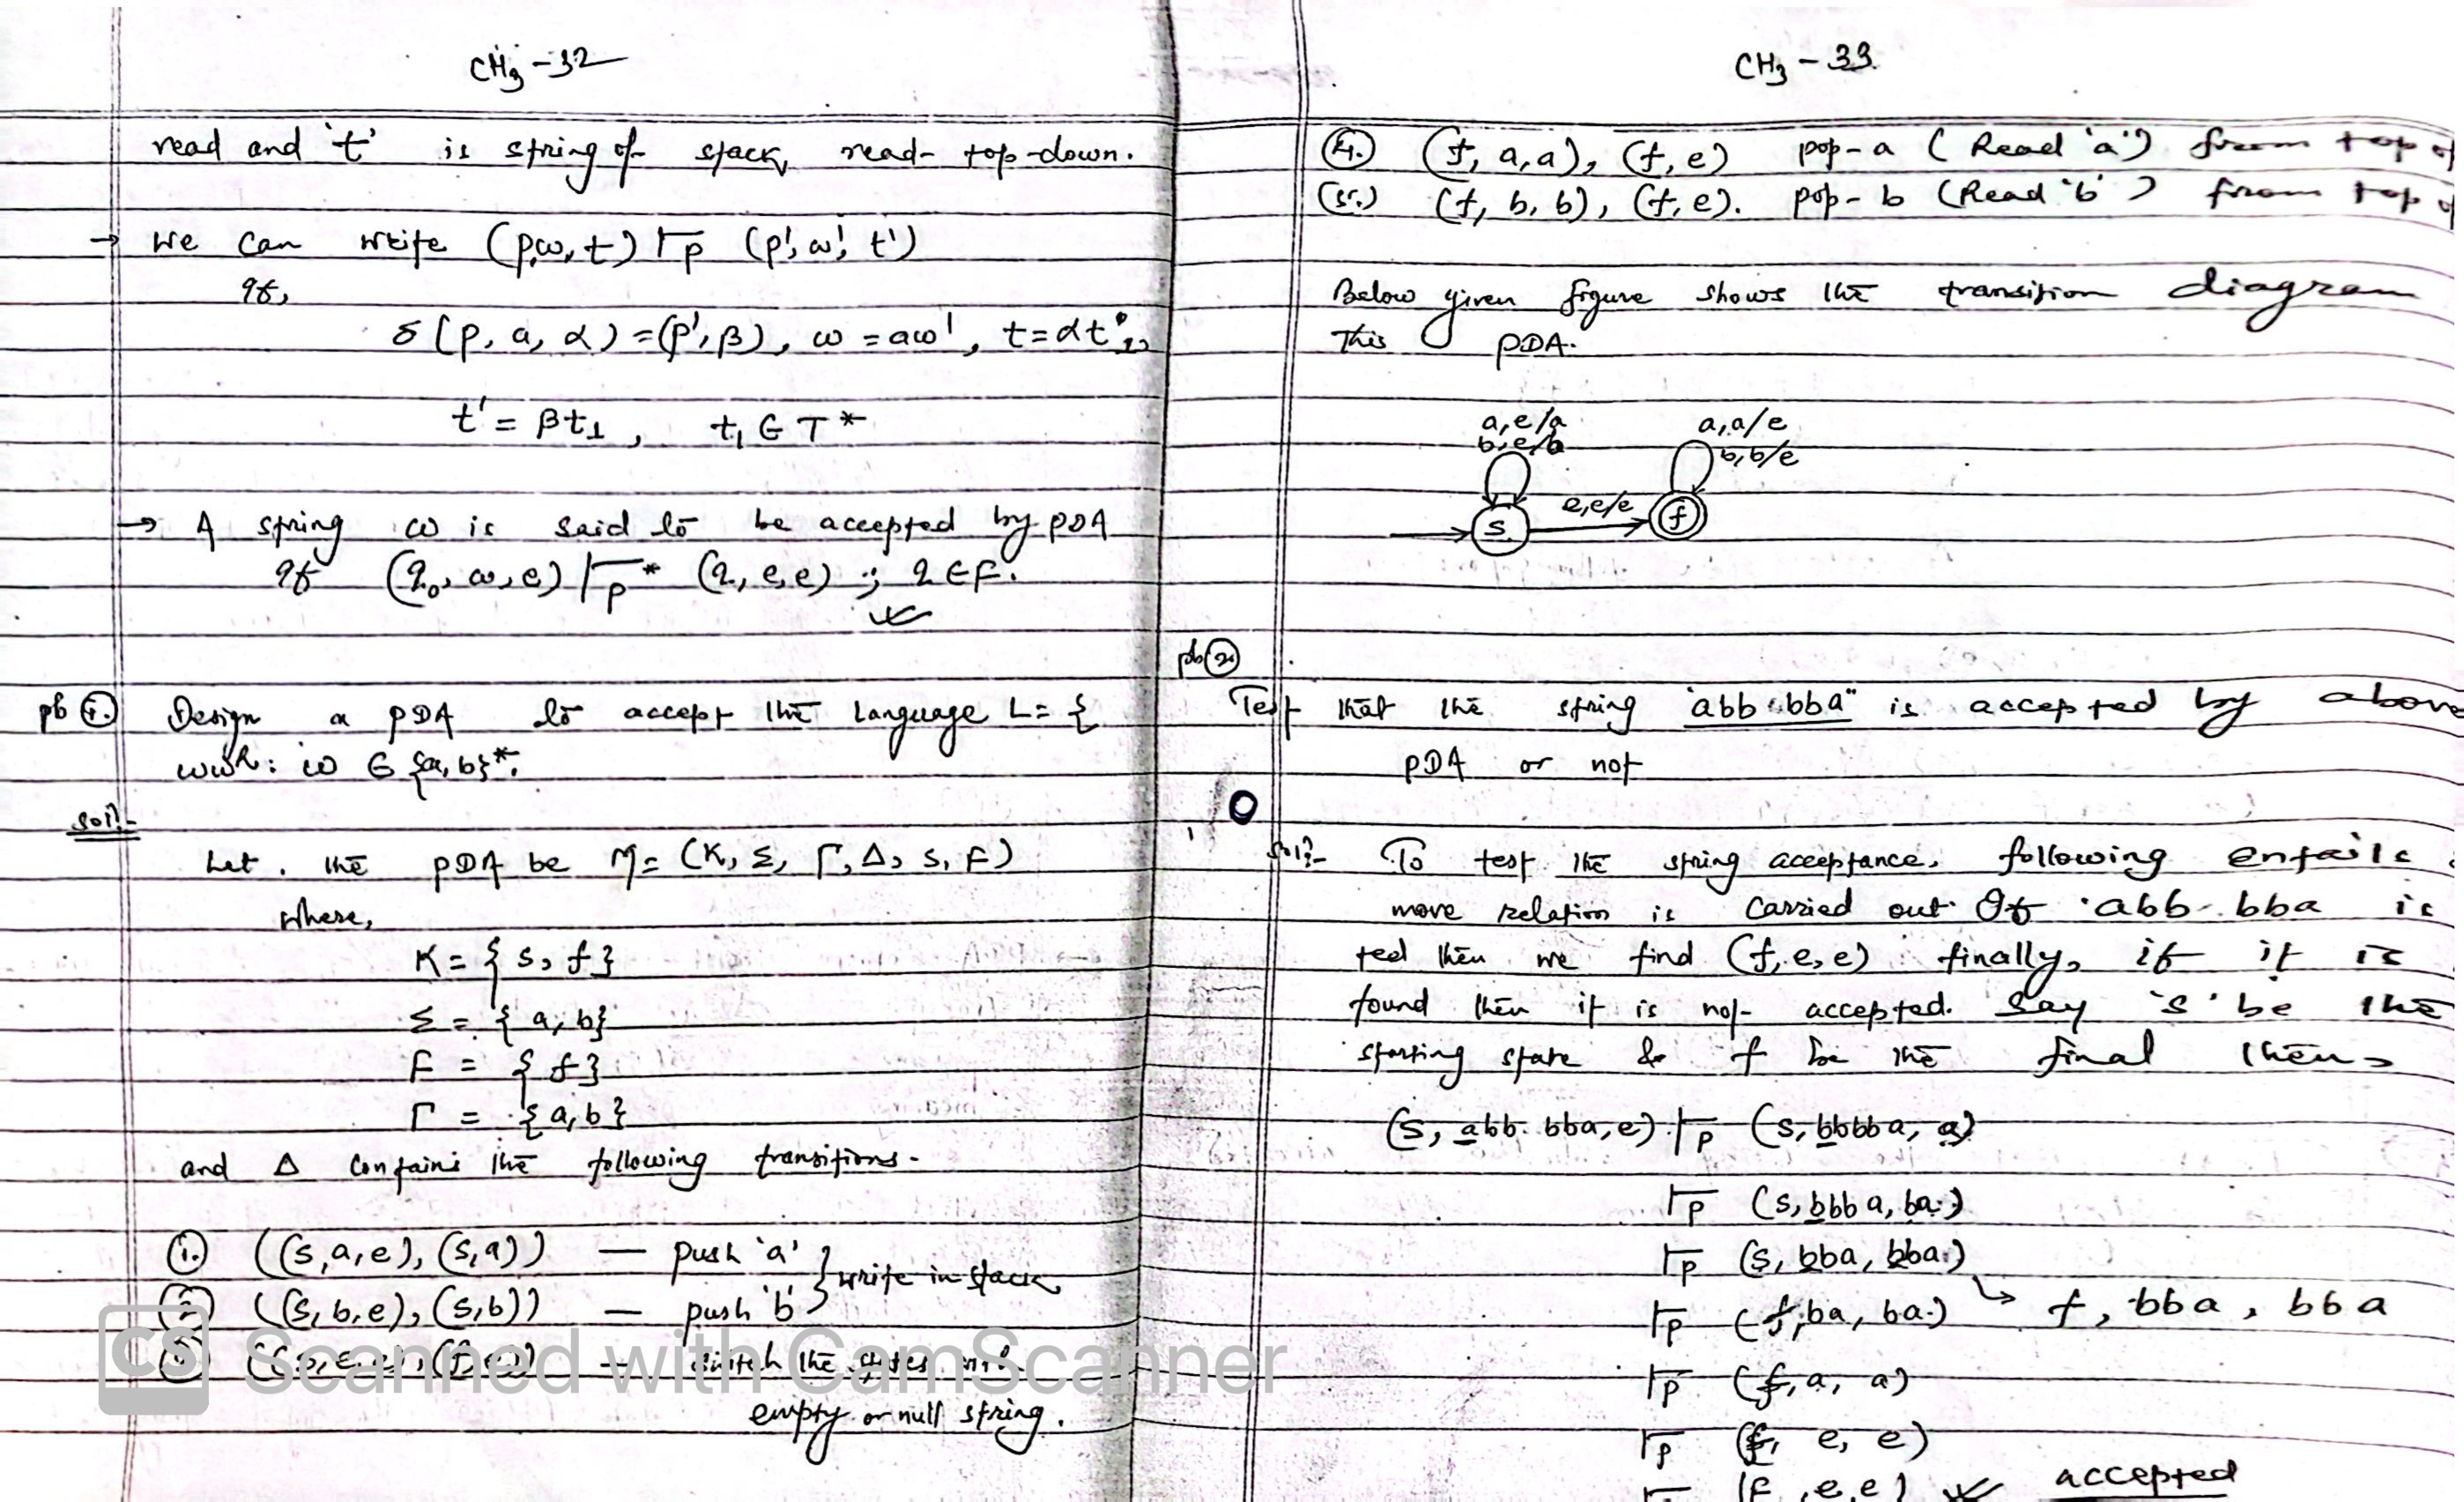 CH3 - 32
read and 't' is string of stack, read top-down.
→ We can write (p,ω,t) ⊢p (p',ω',t')
if,
δ(p, a, α) = (p', β), ω = aω', t = αt1,
t' = βt1, t1 ∈ T*
→ A string ω is said to be accepted by PDA
if (q0, ω, e) ⊢p* (q, e, e) ; q ∈ F.
pb 1. Design a PDA to accept the language L = {
wwR : w ∈ {a, b}*.
Sol:-
Let. the PDA be M = (K, Σ, Γ, Δ, s, F)
where,
K = {s, f}
Σ = {a, b}
F = {f}
Γ = {a, b}
and Δ contains the following transitions.
1. ((s, a, e), (s, a)) — push 'a'
} write in stack
2. ((s, b, e), (s, b)) — push 'b'
((s, e, e), (f, e)) — switch the states
empty or null string.
CS Scanned with CamScanner
CH3 - 33
4. (f, a, a), (f, e) pop-a (Read 'a') from top of
(5.) (f, b, b), (f, e). pop-b (Read 'b') from top of
Below given figure shows the transition diagram
This PDA.
a,e/a
b,e/b
a,a/e
b,b/e
e,e/e
s
f
pb 2
Test that the string "abb bba" is accepted by above
PDA or not
Sol:- To test the string acceptance, following entails
move relation is carried out. If abb bba is
ted then we find (f, e, e) finally, if it is
found then it is not accepted. Say 's' be the
starting state & f be the final then,
(s, abb bba, e) ⊢p (s, bbbba, a)
⊢p (s, bbba, ba)
⊢p (s, bba, bba)
⊢p (f, ba, ba) ↳ f, bba, bba
⊢p (f, a, a)
⊢p (f, e, e)
(f, e, e) accepted